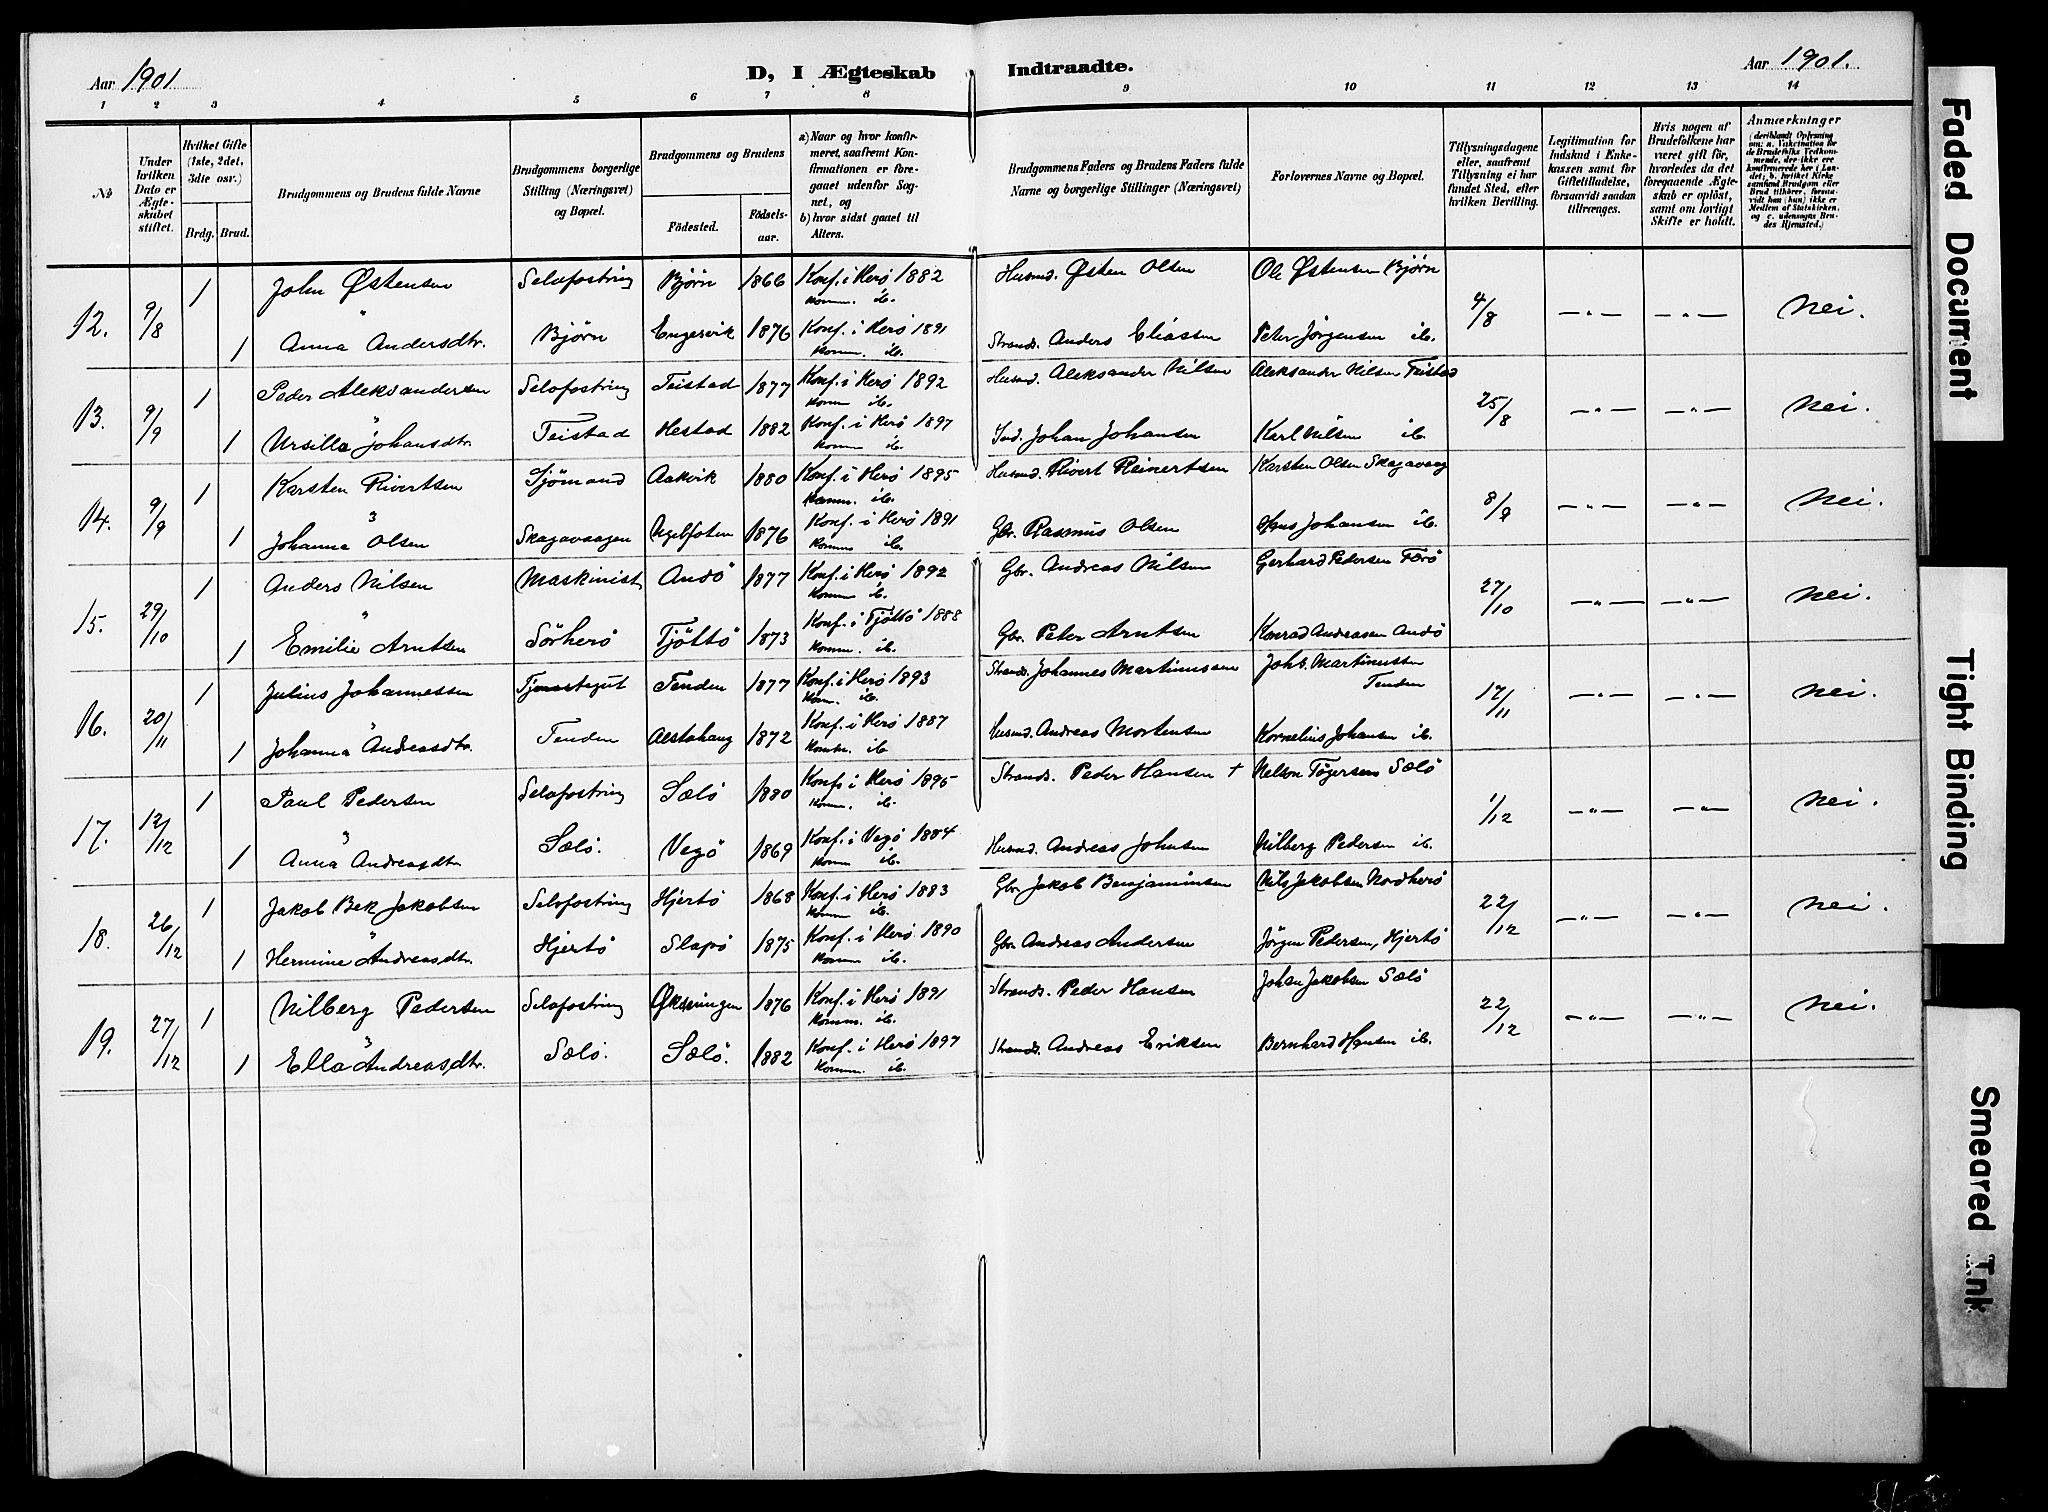 Aar 1901
D, I Ægteskab Indtraadte.
Aar 1901.
1 2 3 4 5 6 7 8 9 10 11 12 13 14
No
Under hvilken Dato er Ægteskabet stiftet.
Hvilket Gifte (1ste, 2det, 3die osv.)
Brdg. Brud.
Brudgommens og Brudens fulde Navne
Brudgommens borgerlige Stilling (Næringsvei) og Bopæl.
Brudgommens og Brudens
Födested.
Födselsaar.
a) Naar og hvor konfirmeret, saafremt Konfirmationen er foregaaet udenfor Sognet, og
b) hvor sidst gaaet til Alters.
Brudgommens Faders og Brudens Faders fulde Navne og borgerlige Stillinger (Næringsvei)
Forlovernes Navne og Bopæl.
Tillysningsdagene eller, saafremt Tillysning ei har fundet Sted, efter hvilken Bevilling.
Legitimation for Indskud i Enkekassen samt for Giftetilladelse, forsaavidt saadan tiltrænges.
Hvis nogen af Brudefolkene har været gift för, hvorledes da det foregaaende Ægteskab er oplöst, samt om lovligt Skifte er holdt.
Anmærkninger
(deriblandt Oplysning om: a. Vakcination for Brudefolks Vedkommende, der ikke ere konfirmerede her i Landet; b. hvilket Kirkesamfund Brudgom eller Brud tilhörer, forsaavidt han (hun) ikke er Medlem af Statskirken, og c. udensogns Brudes Hjemsted.)
12. 9/8 1 John Østensen Selofostring Bjørn 1866 Konf. i Herø 1882 Komm. ib. Husmd. Østen Olsen Ole Østensen Bjørn 4/8 —"— —"— Nei.
1 Anna Andersdtr. Bjørn Engesvik 1876 Konf. i Herø 1891 Komm. ib. Strands. Anders Eliassen Peter Jørgensen ib.
13. 9/9 1 Peder Aleksandersen Selofostring Teistad 1877 Konf. i Herø 1892 Komm ib. Husmd. Aleksander Nilsen Aleksander Nilsen Teistad 25/8 —"— —"— Nei.
1 Ursilla Johansdtr. Teistad Hestad 1882 Konf. i Herø 1897 Komm ib. Ind. Johan Johansen Karl Nilsen ib.
14. 9/9 1 Karsten Rivertsen Sjömand Aakvik 1880 Konf. i Herø 1895 Komm. ib. Husmd. Rivert Reinertsen Karsten Olsen Skagavaag 8/9 —"— —"— Nei.
1 Johanna Olsen Skagavaagen 1876 Konf. i Herø 1891 Komm ib. Gbr. Rasmus Olsen Hans Johansen ib.
15. 29/10 1 Anders Nilsen Maskinist Andö 1877 Konf. i Herø 1892 Komm ib. Gbr. Andreas Nilsen Gerhard Pedersen Færö 27/10 —"— —"— Nei.
1 Emilie Arntsen Sörherö Tjöttö 1873 Konf. i Tjøttö 1888 Komm. ib. Gbr. Peter Arntsen Konrad Andreasen Andö
16. 20/11 1 Julius Johannessen Tjenestegut Tenden 1877 Konf. i Herø 1893 Kom. ib. Strands. Johannes Martinussen Johs. Martinussen Tenden 17/11 —"— —"— Nei.
1 Johanna Andreasdtr. Tenden Alstahaug 1872 Konf. i Herø 1887 Komm. ib. Husmd. Andreas Mortensen Kornelius Johansen ib.
17. 12/12 1 Paul Pedersen Selofostring Sælö 1880 Konf. i Herø 1895 Komm. ib. Strands. Peder Hansen + Nelson Tögersen Sælö 1/12 —"— —"— Nei.
1 Anna Andreasdtr Sælö. Vegö 1869 Konf. i Vegö 1884 Komm ib. Husmd. Andreas Johnsen Nilberg Pedersen ib.
18. 26/12 1 Jakob Bek Jakobsen Selofostring Hjertö 1868 Konf. i Herø 1883 Komm ib. Gbr. Jakob Benjaminsen Nils Jakobsen Nordherö 22/12 —"— —"— Nei.
1 Hermine Andreasdtr. Hjertö Slapö 1875 Konf. i Herø 1890 Komm ib. Gbr Andreas Andersen Jörgen Pedersen, Hjertö
19. 27/12 1 Nilberg Pedersen Selofostring Øksningen 1876 Konf. i Herø 1891 Komm. ib. Strands. Peder Hansen Johan Jakobsen Sælö 22/12 —"— —"— Nei.
1 Ella Andreasdtr. Sælö. Sælö. 1882 Konf. i Herø 1897 Komm. ib. Strands. Andreas Eriksen Bernhard Hansen ib.
Faded Document
Tight Binding
Smeared Ink